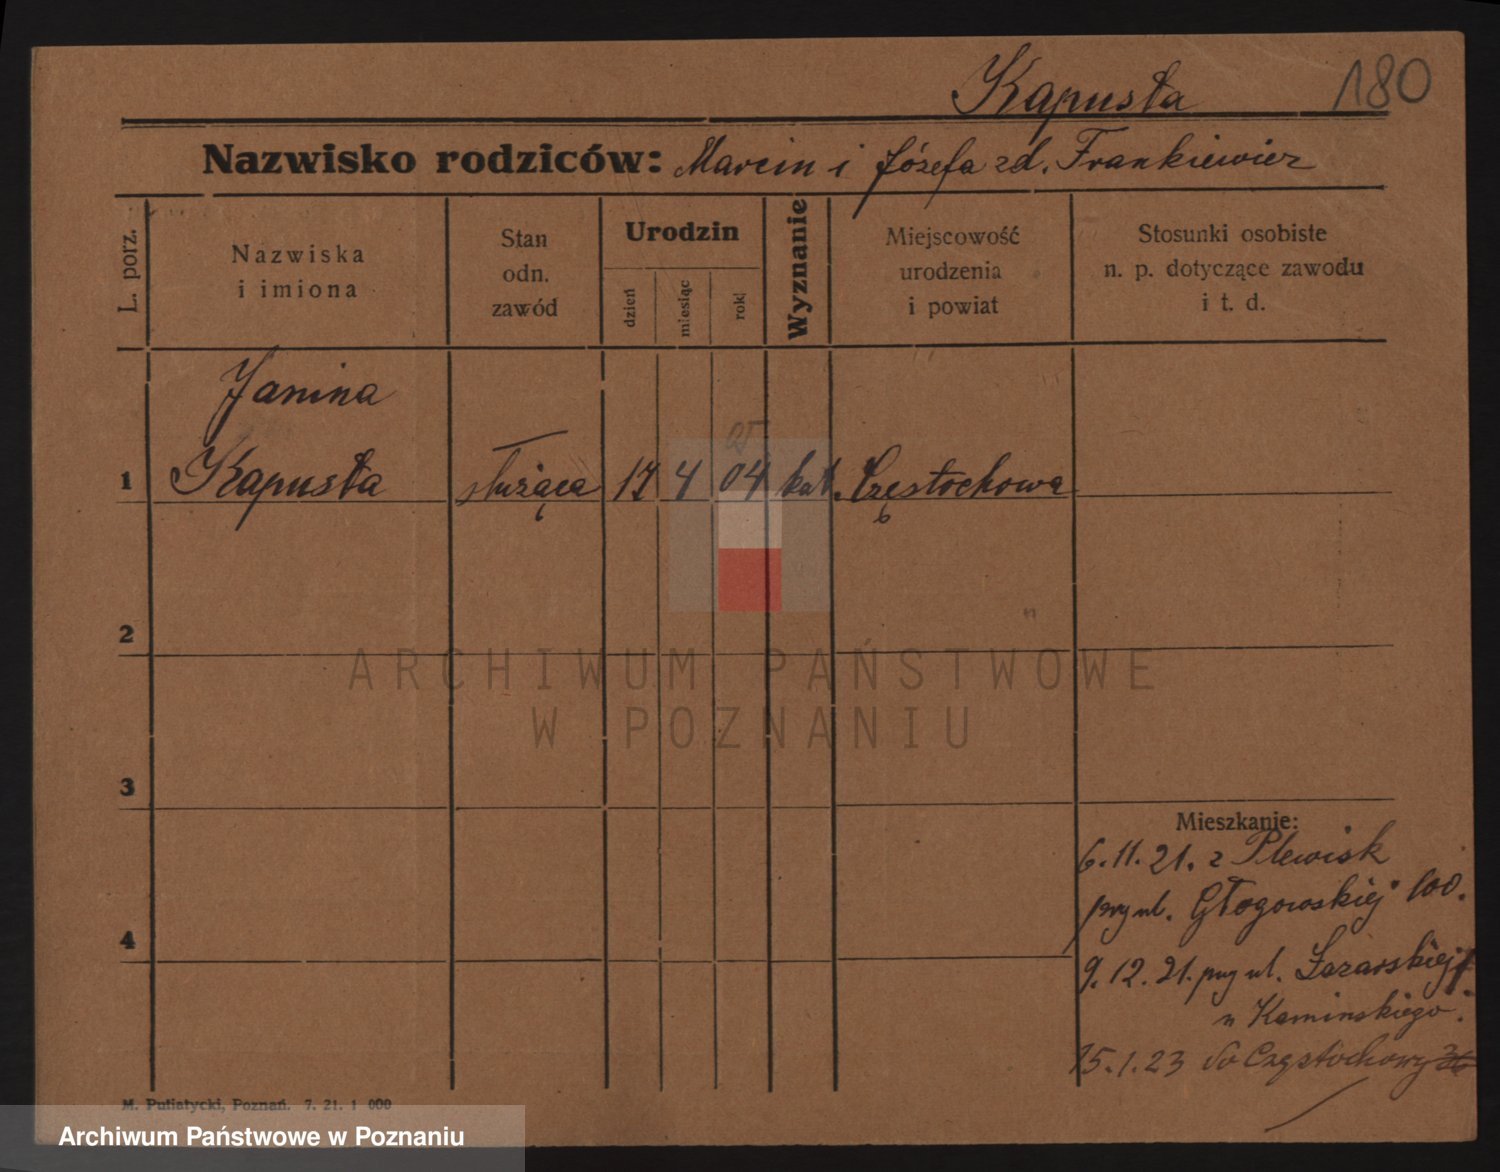 Kapusta 180
Nazwisko rodziców: Marcin i Józefa zd. Frankiewicz
L. porz.
Nazwiska
i imiona
Stan
odn.
zawód
Urodzin
dzień
miesiąc
rok
Wyznanie
Miejscowość
urodzenia
i powiat
Stosunki osobiste
n. p. dotyczące zawodu
i t. d.
Janina
05
1 Kapusta służąca 17 4 04 kat. Częstochowa
2
ARCHIWUM PAŃSTWOWE
W POZNANIU
3
Mieszkanie:
6.11.21. z Plewisk
przy ul. Głogowskiej 100.
4
9.12.21. przy ul. Łazarskiej
u Kaminskiego.
15.1.23 do Częstochowy
M. Putiatycki, Poznań. 7. 21. 1 000
Archiwum Państwowe w Poznaniu